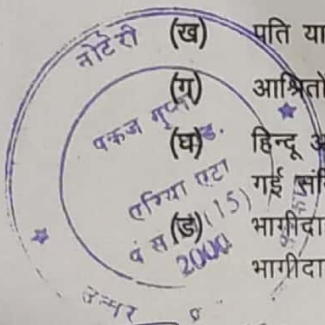 (ख) पति या
(ग) आश्रितो
(घ) हिन्दू अ
गई संि
(ड) भागीदा
भागीदा
नोटेरी
पंकज गुप्ता एड.
एरिया एटा
पं स (15)
2000
उत्तर